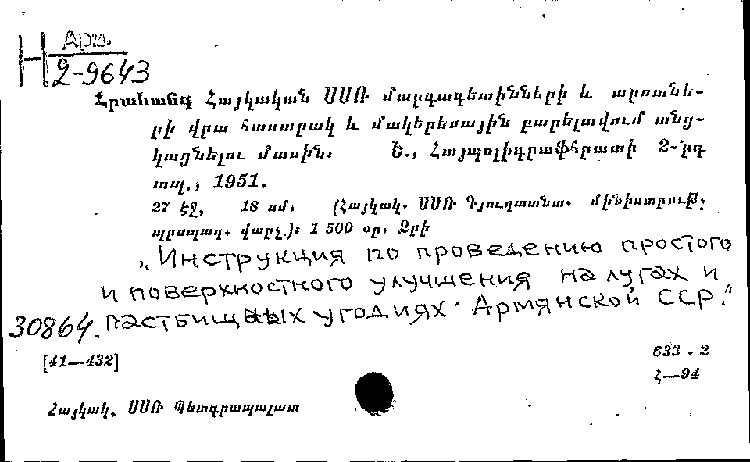 Арм.
Н 2-9643
Հրահանգ Հայկական ՍՍՌ մարգագետինների և արոտնե-
րի վրա հասարակ և մակերեսային բարելավում անց-
կացնելու մասին. Ե., Հայպոլիգրաֆհրատի 2-րդ
տպ., 1951.
27 էջ, 18 սմ. (Հայկակ. ՍՍՌ Գյուղատնտ. մինիստրութ.
պրոպագ. վարչ.)։ 1 500 օր. Ձրի
„Инструкция по проведению простого
и поверхностного улучшения на лугах и
30864. пастбищных угодиях Армянской ССР."
[41—432]
633.2
Հ—94
Հայկակ. ՍՍՌ Պետգրապալատ